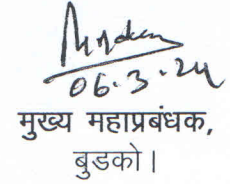 06.3.24
मुख्य महाप्रबंधक,
बुडको।